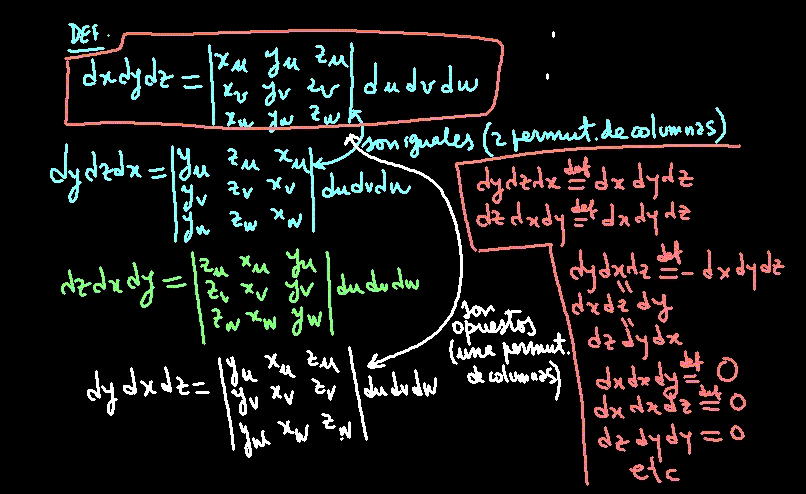 DEF.
dxdydz = | x_u y_u z_u | dudvdw
| x_v y_v z_v |
| x_w y_w z_w |
son iguales (2 permut. de columnas)
dydzdx = | y_u z_u x_u | dudvdw
| y_v z_v x_v |
| y_w z_w x_w |
dzdxdy = | z_u x_u y_u | dudvdw
| z_v x_v y_v |
| z_w x_w y_w |
son
opuestos
(una permut.
de columnas)
dydxdz = | y_u x_u z_u | dudvdw
| y_v x_v z_v |
| y_w x_w z_w |
dydzdx =def dxdydz
dzdxdy =def dxdydz
dydxdz =def -dxdydz
=
dxdzdy
=
dzdydx
dxdxdy =def 0
dxdxdz =def 0
dzdydy = 0
etc